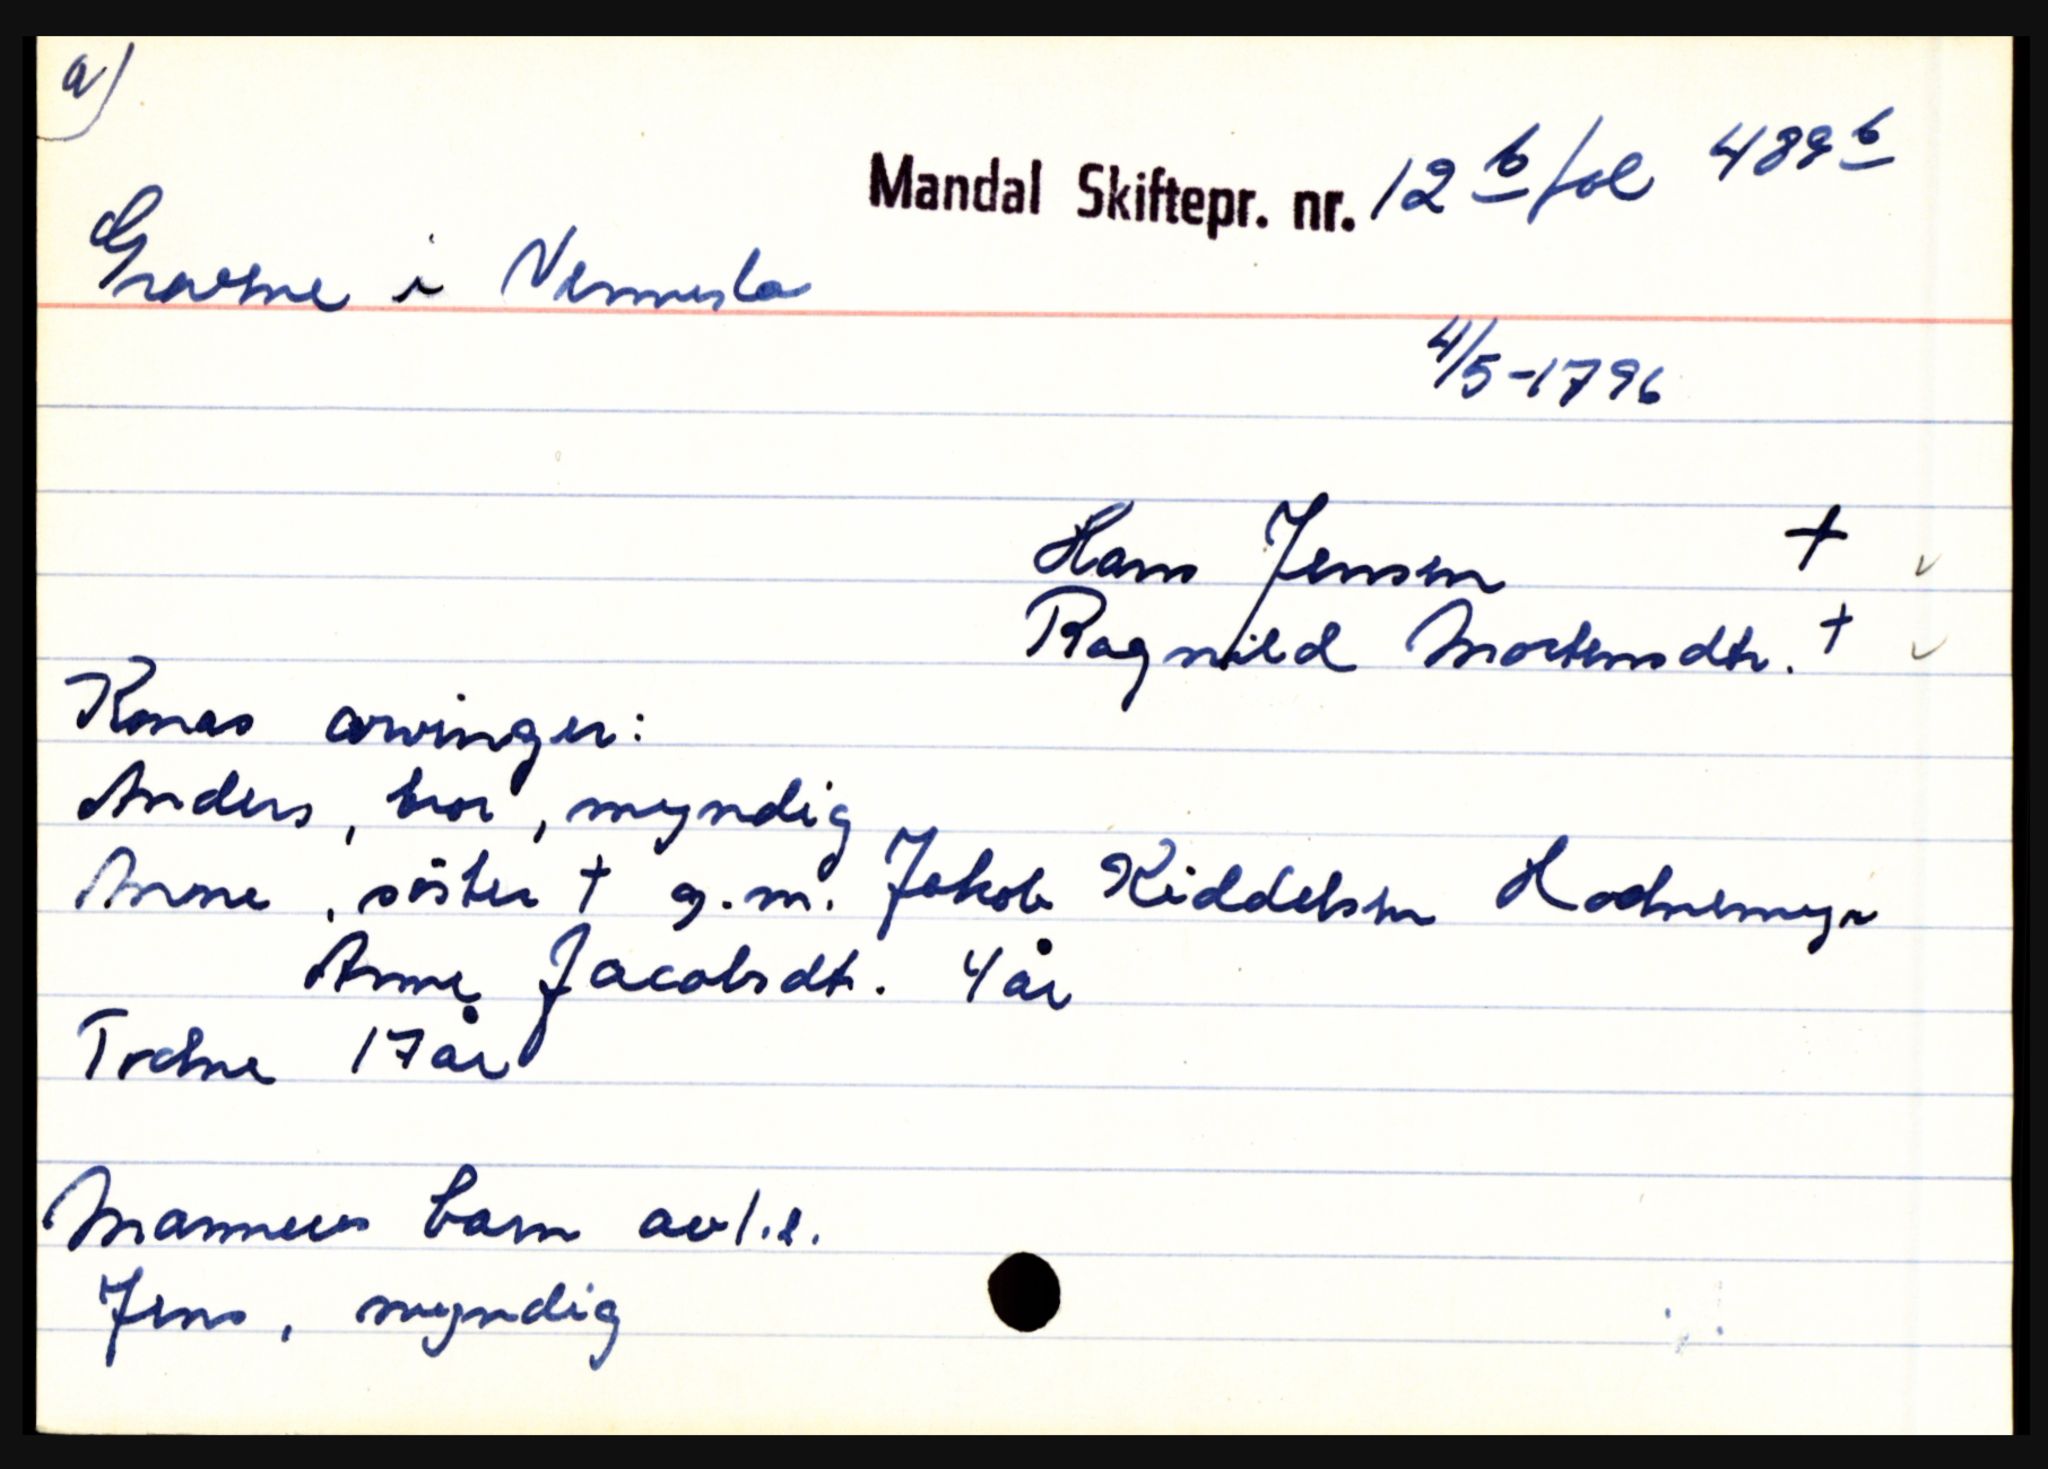 a)
Mandal Skiftepr. nr. 12 b fol 489 b
Graslie i Vennesla
4/5-1796
Hans Jensen †
Ragnild Mortensdtr. †
Konas arvinger:
Anders, bror, myndig
Anne, söster † g.m. Jakob Kiddelsen Hodnemyr
Anne Jacobsdtr. 4 år
Trdne 17 år
Mannens barn av 1.e.
Jens, myndig